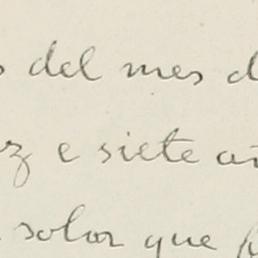 s del mes d
ez e siete añ
solor que f